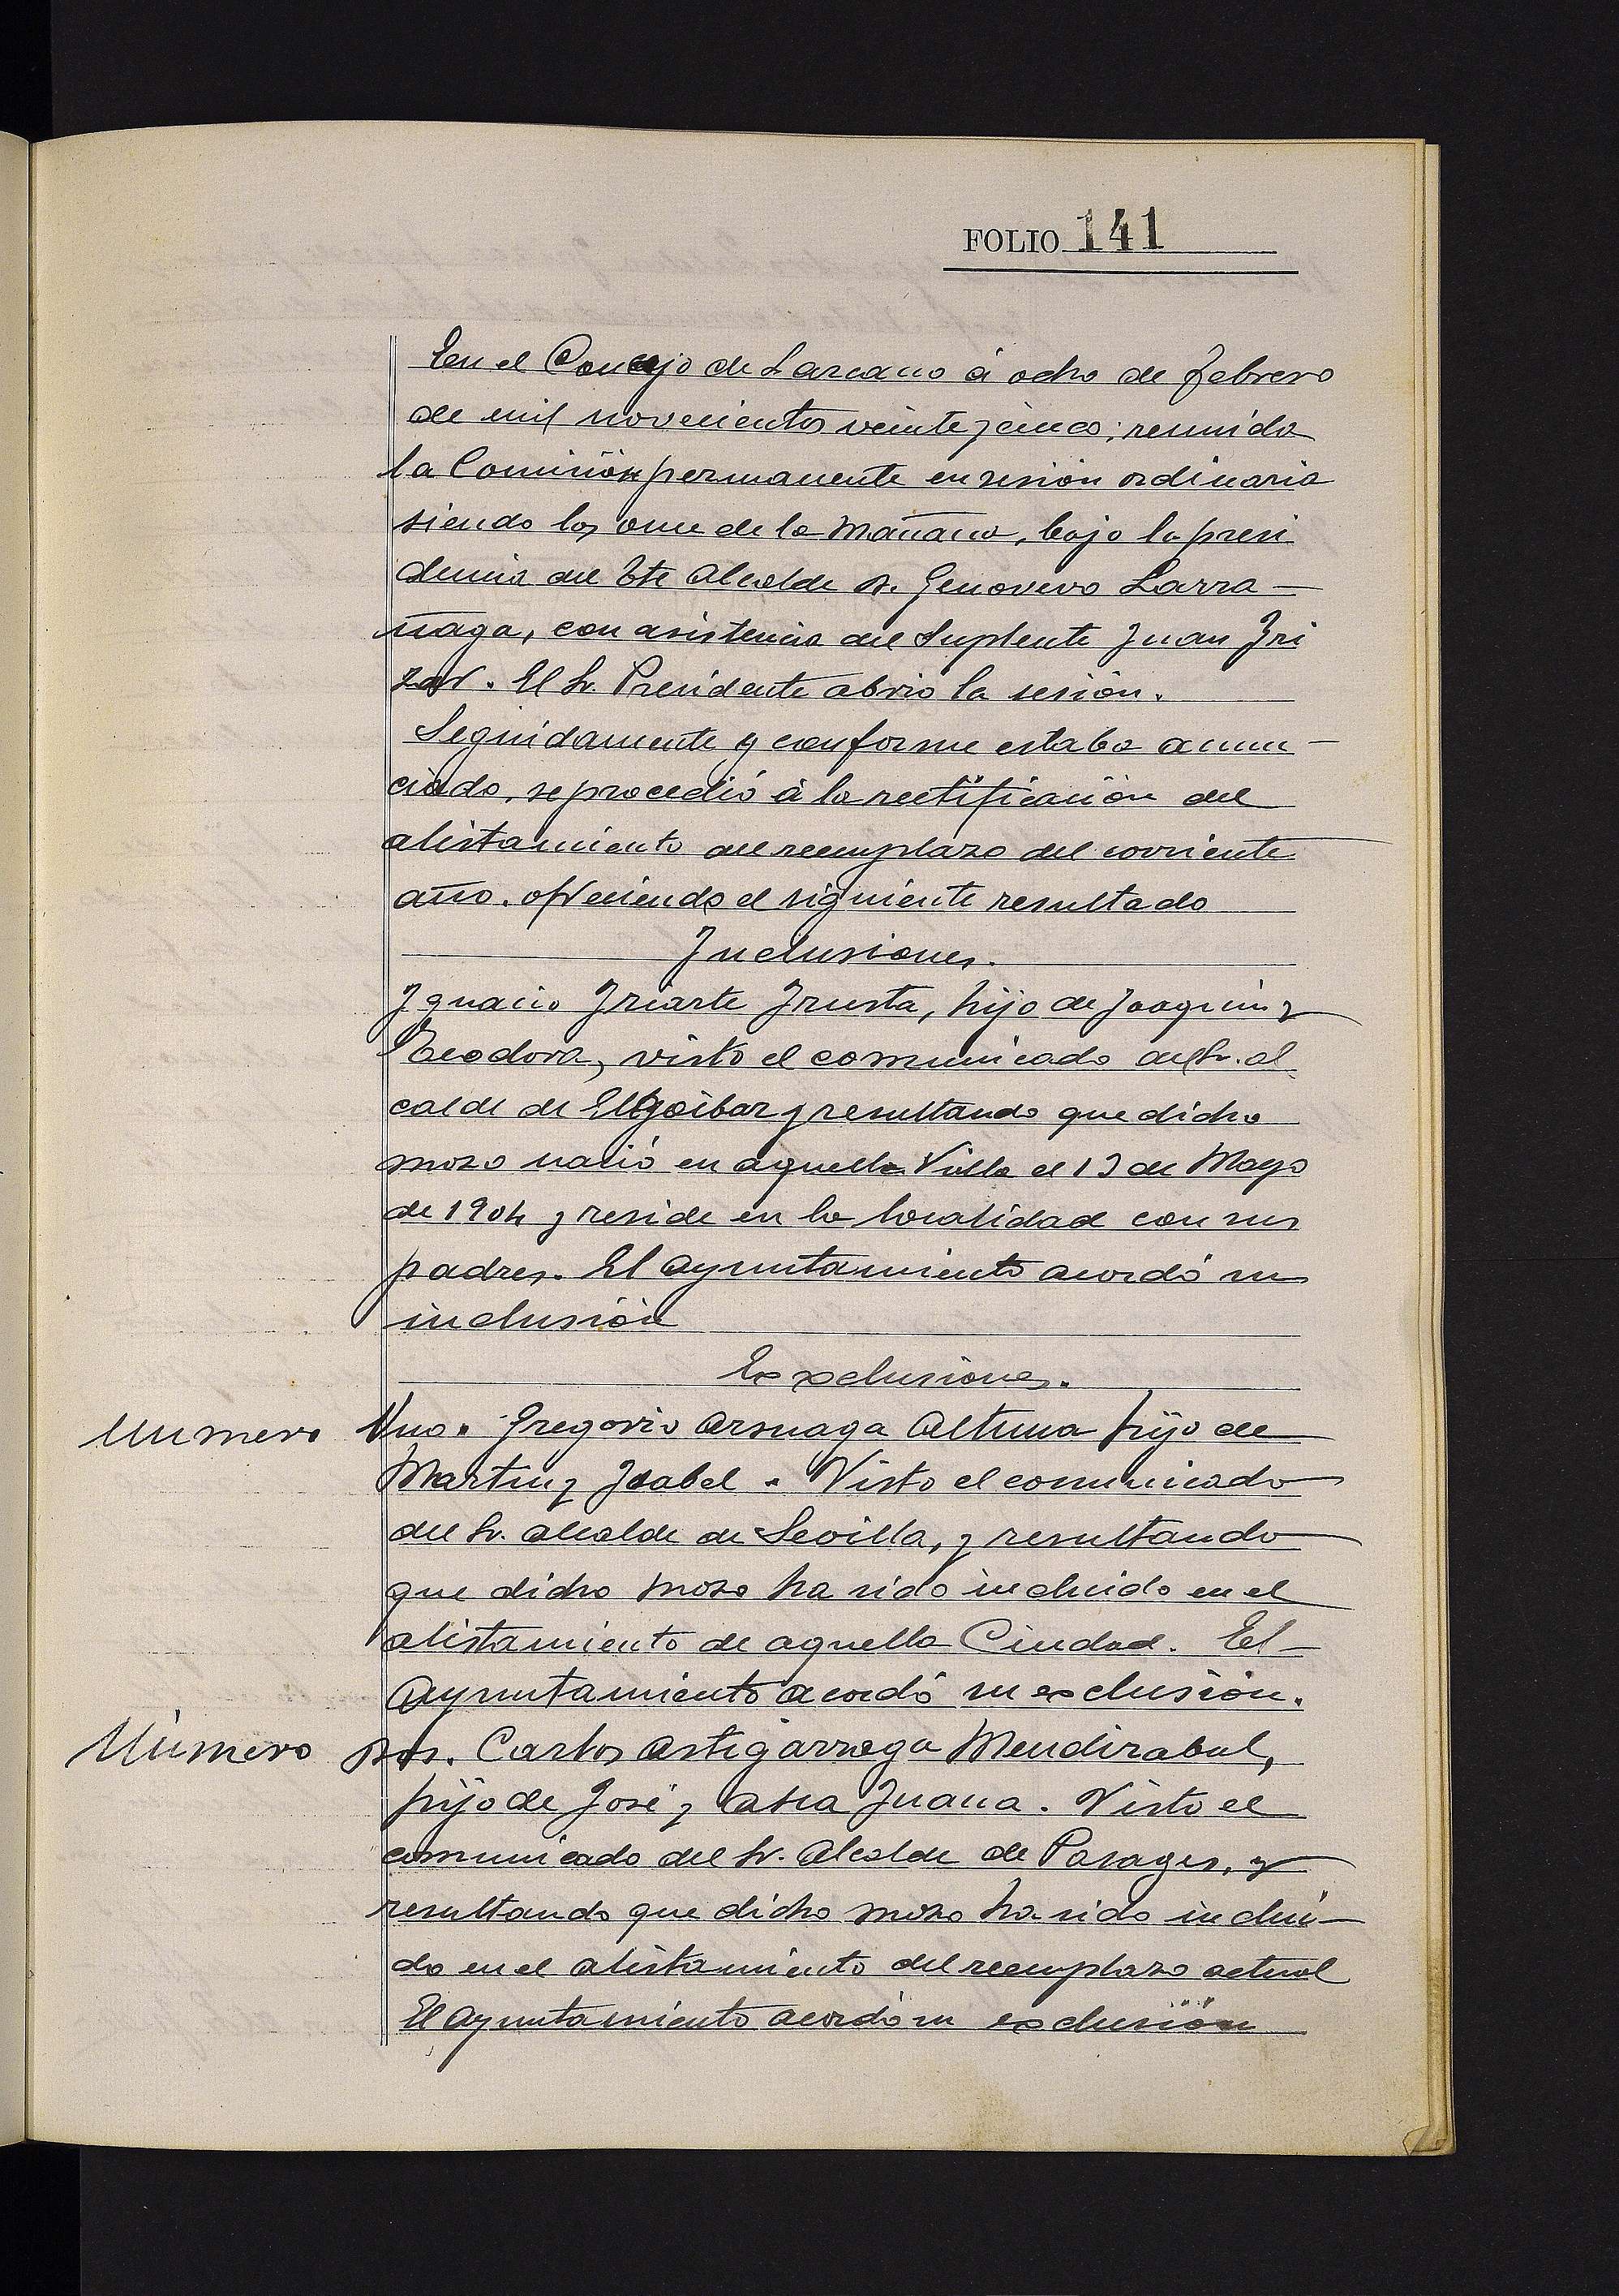 FOLIO 141
En el Concejo de Lazcano á ocho de febrero
de mil novecientos veinte y cinco; reunida
la Comisión permanente en sesión ordinaria
siendo las once de la mañana, bajo la presi
dencia del Tte Alcalde D. Genovevo Larra-
ñaga, con asistencia del Suplente Juan Iri
zar. El Sr. Presidente abrio la sesión.
Seguidamente y conforme estaba anun-
ciado, se procedió á la rectificación del
alistamiento del reemplazo del corriente
año. ofreciendo el siguiente resultado
Inclusiones.
Ignacio Iriarte Irusta, hijo de Joaquin y
Teodora, visto el comunicado del Sr. al
calde de Elgoibar y resultando que dicho
mozo nació en aquella Villa el 13 de Mayo
de 1904 y reside en la localidad con sus
padres. El Ayuntamiento acordó su
inclusión
Exclusiones.
Numero Uno. Gregorio Arsuaga Altuna hijo de
Martin y Isabel. Visto el comunicado
del Sr. alcalde de Sevilla, y resultando
que dicho mozo ha sido incluido en el
alistamiento de aquella Ciudad. El-
Ayuntamiento acordó su exclusión.
Número Dos. Carlos Astigarraga Mendizabal,
hijo de José y Ana Juana. Visto el
comunicado del Sr. Alcalde de Pasages, y
resultando que dicho mozo ha sido inclui-
do en el alistamiento del reemplazo actual
El Ayuntamiento acordó su exclusión